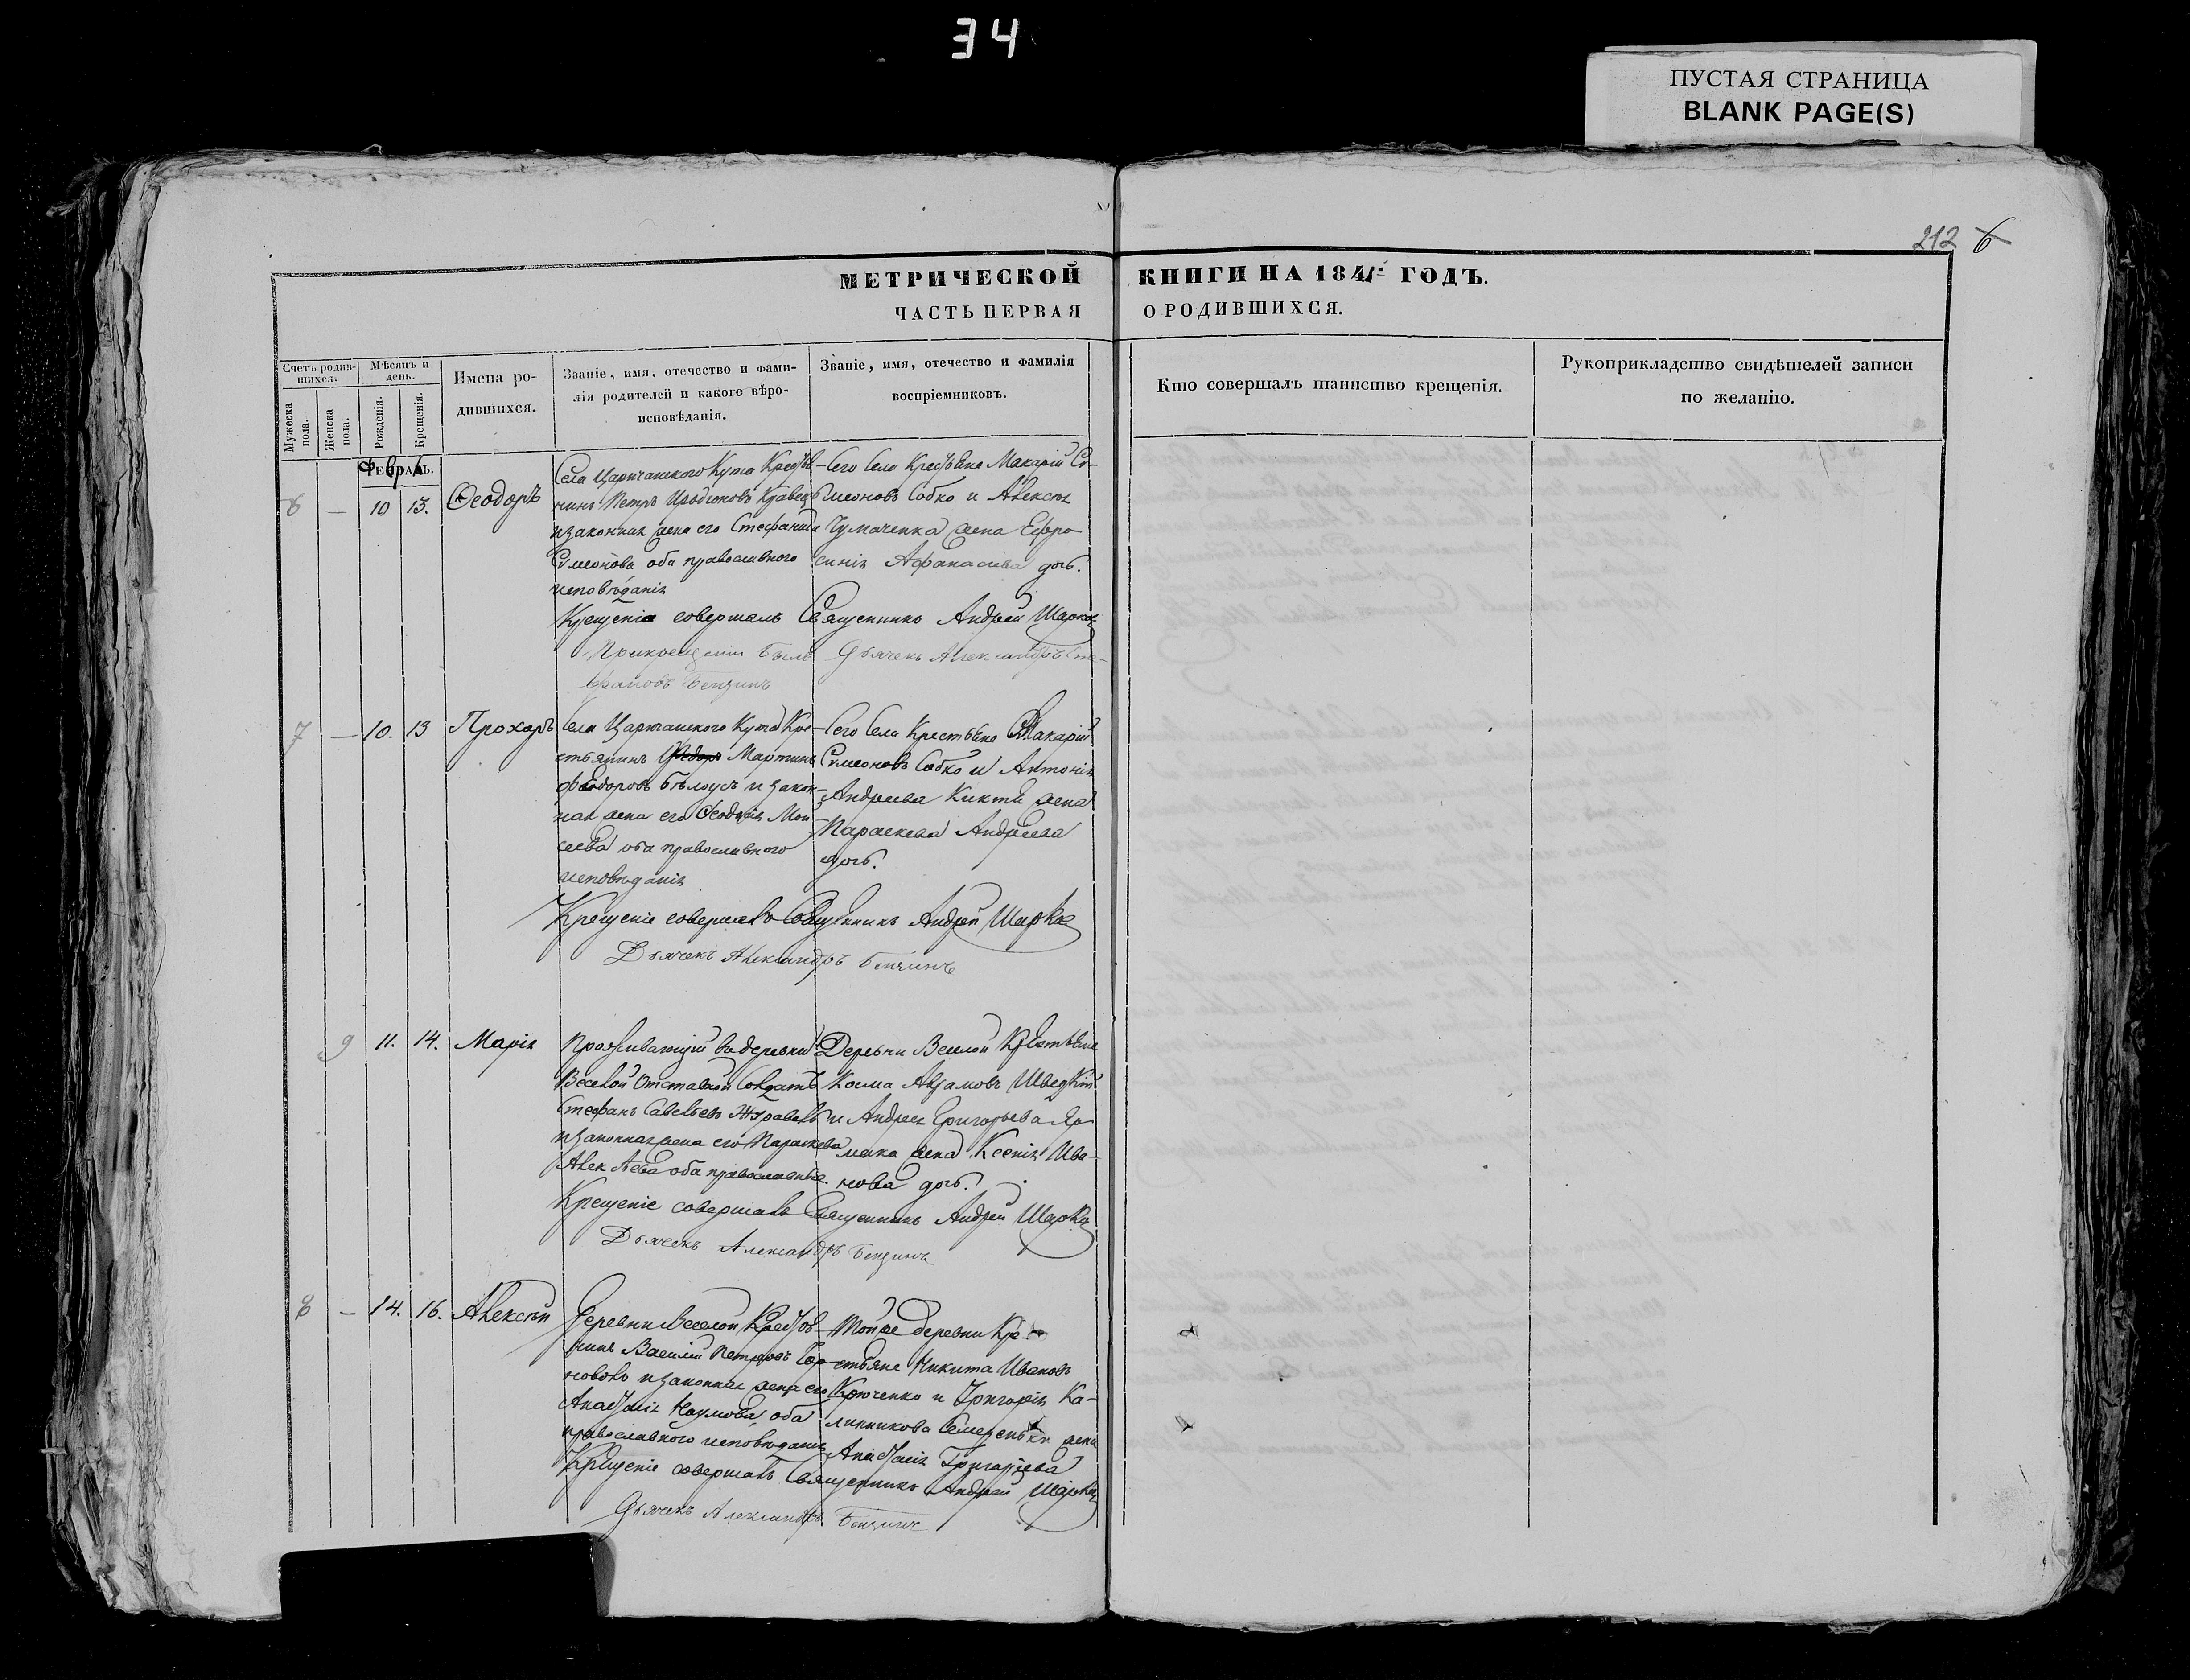 34
ПУСТАЯ СТРАНИЦА
BLANK PAGE(S)
212 6
МЕТРИЧЕСКОЙ КНИГИ НА 1841 ГОДЪ.
ЧАСТЬ ПЕРВАЯ О РОДИВШИХСЯ.
Счетъ родив-
шихся.
Мужеска пола.
Женска пола.
Мѣсяцъ и
день.
Рожденія.
Крещенія.
Имена ро-
дившихся.
Званіе, имя, отечество и фами-
лія родителей и какого вѣро-
исповѣданія.
Званіе, имя, отечество и фамилія
воспріемниковъ.
Кто совершалъ таинство крещенія.
Рукоприкладство свидѣтелей записи
по желанію.
Февраль.
6 — 10 13. Ѳеодоръ
Села Царичанского Кута
нинъ Петръ Кравецъ
и законная жена его Стефанида
Симеонова оба православного
исповѣданія
Сего Села Макарій Си-
меоновъ Собко и Алексѣя
Чумаченка жена Ефро-
синія Афанасіева дочь.
Крещеніе совершалъ Священникъ Андрей
При крещеніи былъ Дьячекъ Александръ Сте-
фановъ
7 — 10. 13 Прохоръ
Села Царичанского Кута Кре-
стьянинъ Мартинъ
Федоровъ Бѣлоусъ и закон-
ная жена его Мои
сеева оба православного
исповѣданія
Сего Села Крестьяне Макарій
Симеоновъ Собко и Антонія
Андреева Кикти жена
Параскева Андреева
дочь.
Крещеніе совершалъ Священникъ Андрей
Дьячекъ Александръ
9 11. 14. Марія
Проживающій въ деревни
Веселой Отставной Солдатъ
Стефанъ Савельевъ Журавель
и законная жена его Параскева
оба православные.
Деревни Веселой Крестьяне
Косма Швецкій
и Андрея Григорьева Яр-
мака жена Ксенія Ива-
нова дочь.
Крещеніе совершалъ Священникъ Андрей
Дьячекъ Александръ
8 — 14. 16. Алексѣй
Деревни Веселой
нинъ Василій Петровъ
и законная жена его
Анастасія Наумова оба
православного исповѣданія
Той же деревни Кре-
стьяне Никита Ивановъ
Крюченко и Григорія Ка-
линникова жена
Анастасія Григоріева
Крещеніе совершалъ Священникъ Андрей
Дьячекъ Александръ